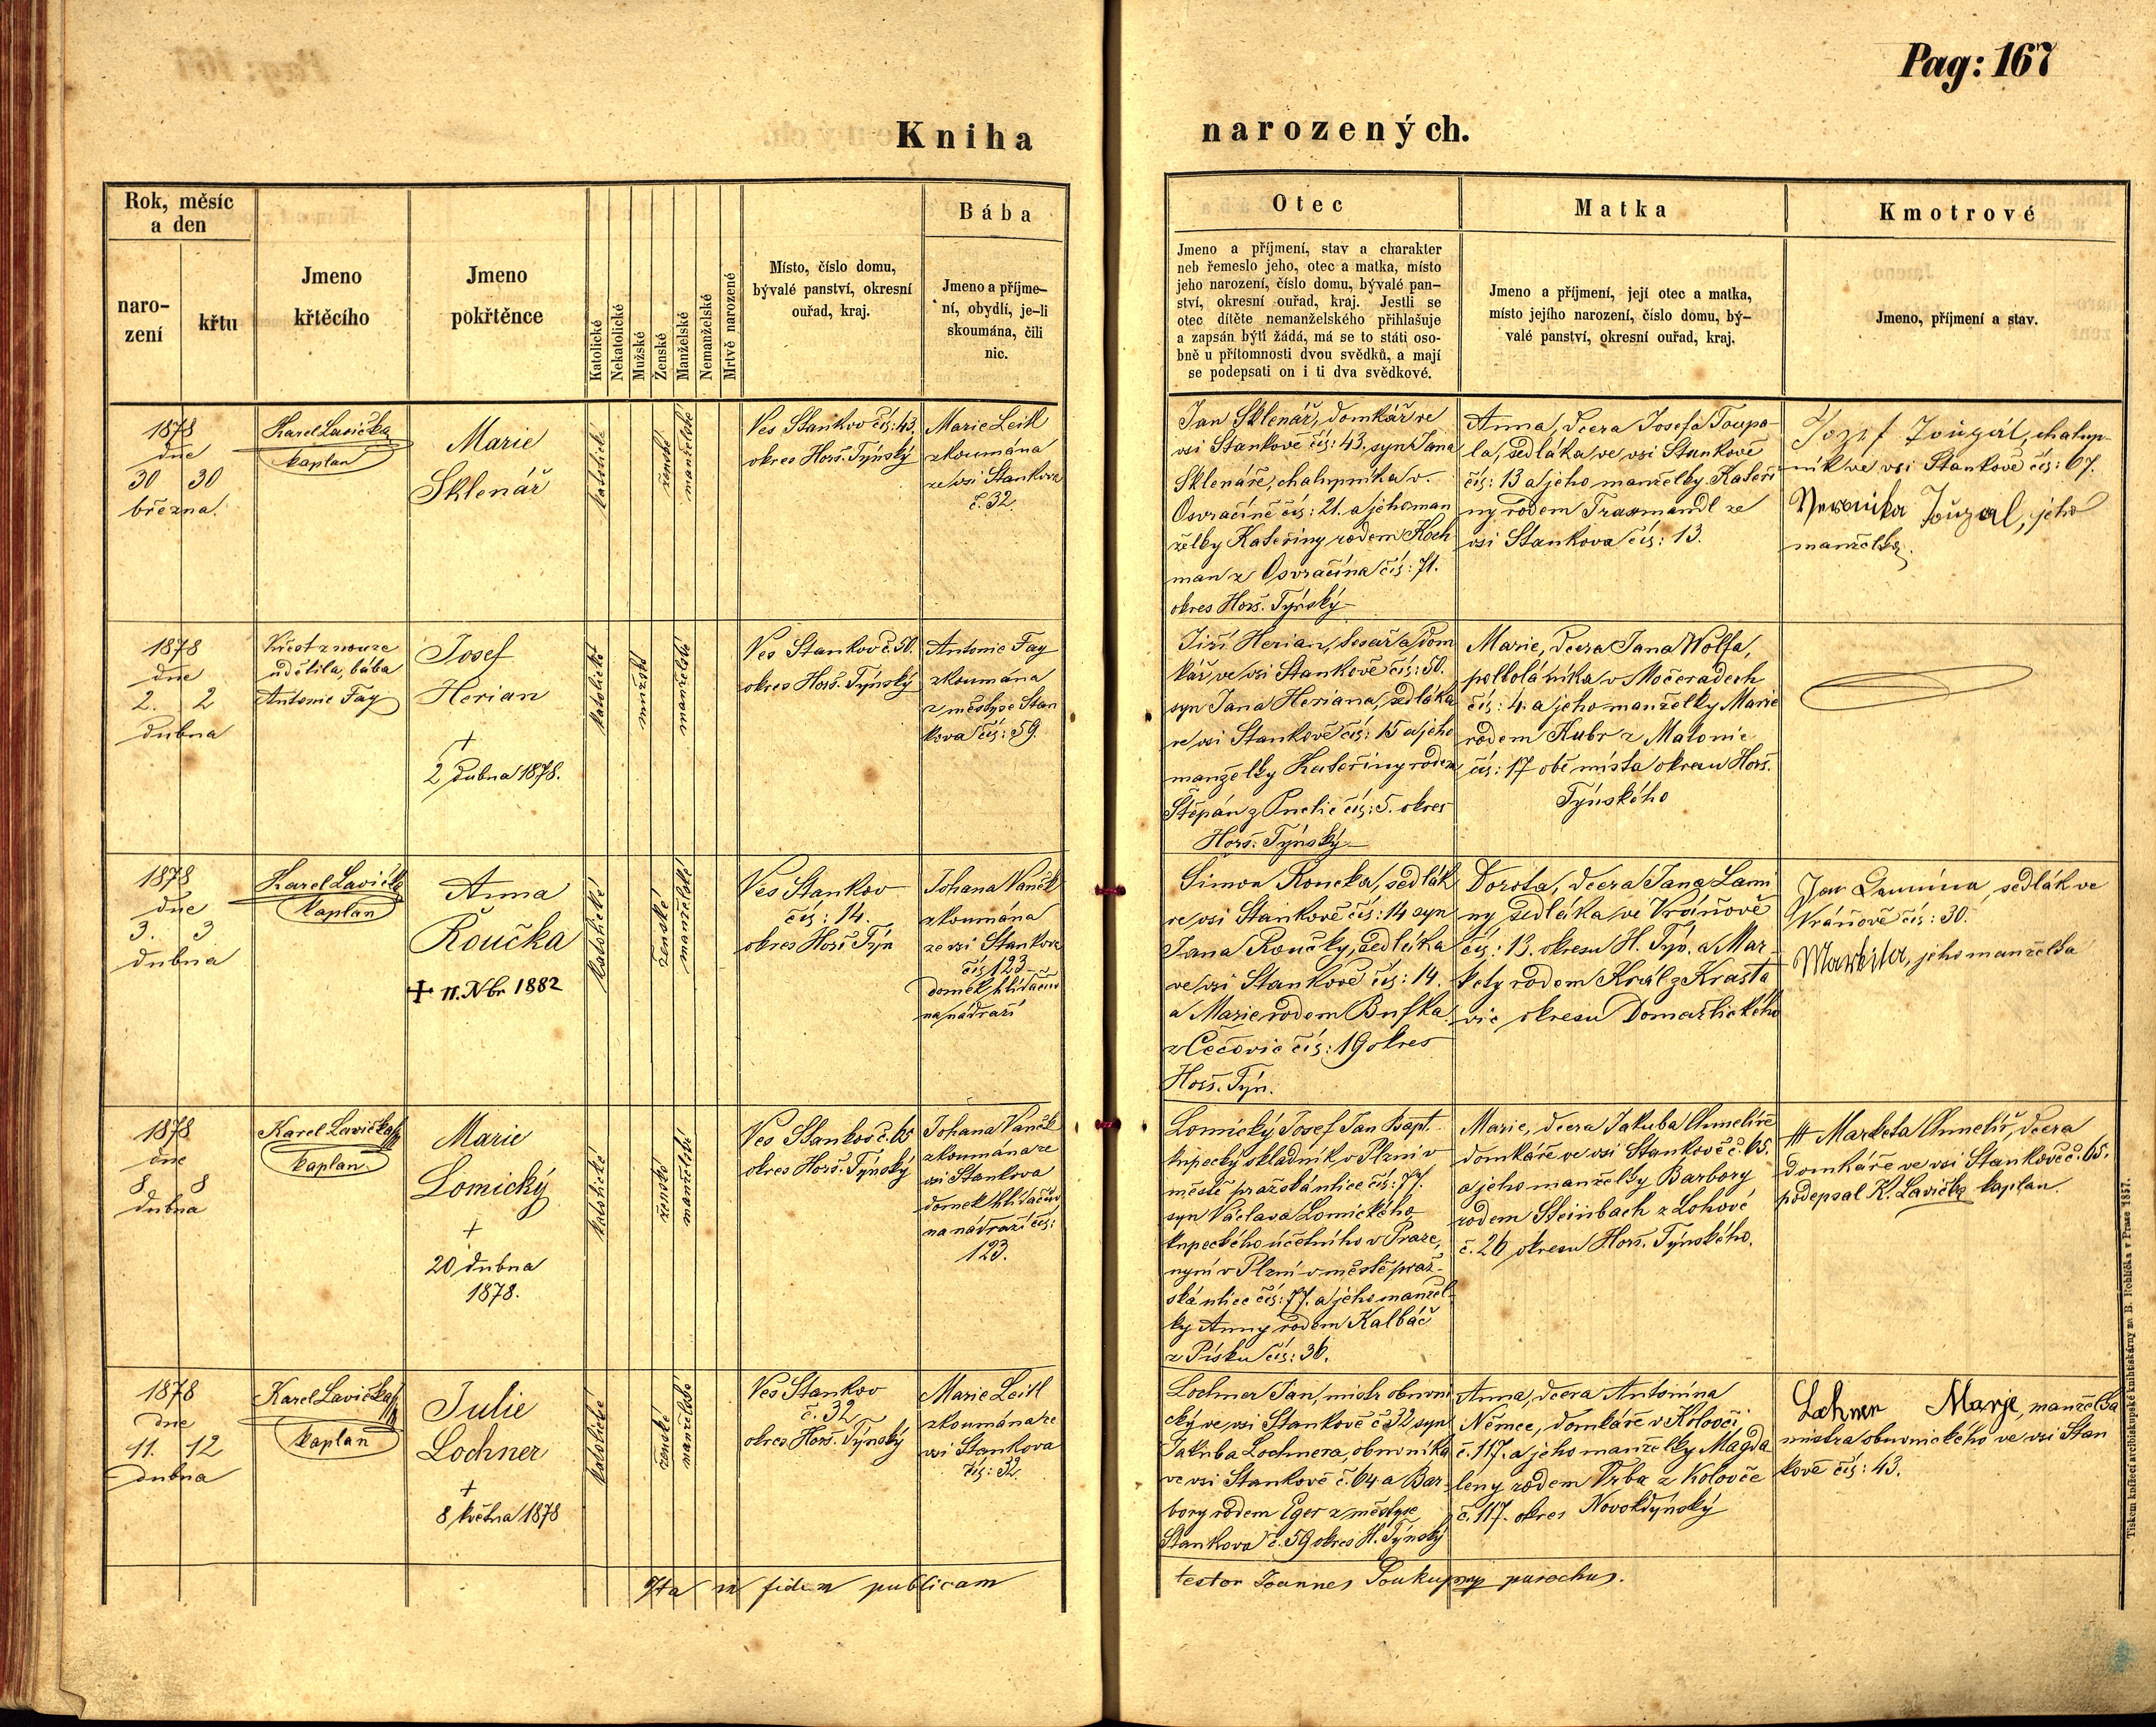 Pag: 167
Kniha narozených.
Rok, měsíc
a den
naro-
zení
křtu
Jmeno
křtěcího
Jmeno
pokřtěnce
Katolické
Nekatolické
Mužské
Ženské
Manželské
Nemanželské
Mrtvě narozené
Místo, číslo domu,
bývalé panství, okresní
ouřad, kraj.
Bába
Jmeno a příjme-
ní, obydlí, je-li
skoumána, čili
nic.
Otec
Jmeno a příjmení, stav a charakter
neb řemeslo jeho, otec a matka, místo
jeho narození, číslo domu, bývalé pan-
ství, okresní ouřad, kraj. Jestli se
otec dítěte nemanželského přihlašuje
a zapsán býti žádá, má se to státi oso-
bně u přítomnosti dvou svědků, a mají
se podepsati on i ti dva svědkové.
Matka
Jmeno a příjmení, její otec a matka,
místo jejího narození, číslo domu, bý-
valé panství, okresní ouřad, kraj.
Kmotrové
Jmeno, příjmení a stav.
1878
dne
30 30
března.
Karel Lavička
kaplan
Marie
Sklenář
katolické
ženské
manželské
Ves Stankov čís: 43.
okres Horš. Týnský
Marie Leitl
zkoumána
ze vsi Stankova
č. 32.
Jan Sklenář, domkář ve
vsi Stankově čís: 43, syn Jana
Sklenáře, chalupníka v
Osvračíně čís: 21. a jeho man
želky Kateřiny rodem Koch
man z Osvračína čís: 71.
okres Horš. Týnský
Anna, dcera Josefa Toupa
la, sedláka ve vsi Stankově
čís: 13 a jeho manželky Kateři
ny rodem Traxmandl ze
vsi Stankova čís: 13.
Jozef Toužal, chalup-
ník ve vsi Stankově čís: 67.
Veronika Toužal, jeho
manželka.
1878
dne
2. 2
dubna
Křest z nouze
udělila, bába
Antonie Fay
Josef
Herian
+
2 dubna 1878.
katolické
mužské
manželské
Ves Stankov č. 50.
okres Horš. Týnský
Antonie Fay
zkoumána
z městyse Stan
kova čís: 59.
Jiří Herian, tesař a dom
kář ve vsi Stankově čís: 50.
syn Jana Heriana, sedláka
ve vsi Stankově čís: 15 a jeho
manželky Kateřiny rodem
Štěpán z Puclic čís: 5. okres
Horš. Týnský
Marie, dcera Jana Wolfa,
pololáníka v Močeradech
čís: 4. a jeho manželky Marie
rodem Kubr z Malonic
čís: 17 obě místa okresu Horš.
Týnského
1878
dne
3. 3
dubna
Karel Lavička
kaplan
Anna
Roučka
+ 11. Nbr 1882
katolické
ženské
manželské
Ves Stankov
čís: 14.
okres Horš Týn
Johana Vaněk
zkoumána
ze vsi Stankova
čís 123
domek hlídačův
na nádraží
Šimon Roučka, sedlák
ve vsi Stankově čís: 14 syn
Jana Roučky, sedláka
ve vsi Stankově čís: 14.
a Marie rodem Bufka
z Čečovic čís: 19 okres
Horš. Týn.
Dorota, dcera Jana Lami
ny sedláka ve Vráňově
čís: 13. okresu H. Týn. a Mar
kety rodem Král z Krasta
vic okresu Domažlického
Jan Lamina, sedlák ve
Vráňově čís: 30.
Markita, jeho manželka
1878
dne
8 8
dubna
Karel Lavička
kaplan.
Marie
Lomický
+
20 dubna
1878.
katolické
ženské
manželské
Ves Stankov č. 65
okres Horš. Týnský
Johana Vaněk
zkoumána ze
vsi Stankova
domek hlídačův
na nádraží čís:
123.
Lomický Josef Jan Bapt.
kupecký skladník v Plzni v
městě pražská ulice čís: 77.
syn Václava Lomického
kupeckého účetního v Praze,
nyní v Plzni v městě praž-
ská ulice čís: 77. a jeho manžel-
ky Anny rodem Kalbáč
z Písku čís: 36.
Marie, dcera Jakuba Chmelíře
domkáře ve vsi Stankově č. 65.
a jeho manželky Barbory
rodem Steinbach z Lohové
č. 26 okresu Horš. Týnského.
+++ Marketa Chmelíř, dcera
domkáře ve vsi Stankově č. 65.
podepsal K. Lavička kaplan.
1878
dne
11. 12
dubna
Karel Lavička
kaplan
Julie
Lochner
+
8 května 1878
katolické
ženské
manželské
Ves Stankov
č. 32
okres Horš. Týnský
Marie Leitl
zkoumána ze
vsi Stankova
čís: 32.
Lochner Jan, mistr obuvni
cký ve vsi Stankově č 32 syn
Jakuba Lochnera, obuvníka
ve vsi Stankově č. 64 a Bar-
bory rodem Eger z městyse
Stankova č. 59 okres H. Týnský
Anna, dcera Antonína
Němce, domkáře v Kolovči
č. 117. a jeho manželky Magda
leny rodem Vrba z Kolovče
č. 117. okres Novokdýnský
Lochner Marje, manželka
mistra obuvnického ve vsi Stan
kově čís: 43.
Ita in fidem publicam testor Joannes Soukup parochus.
Tiskem knížecí arcibiskupské knihtiskárny za B. Rohlíčka v Praze 1857.